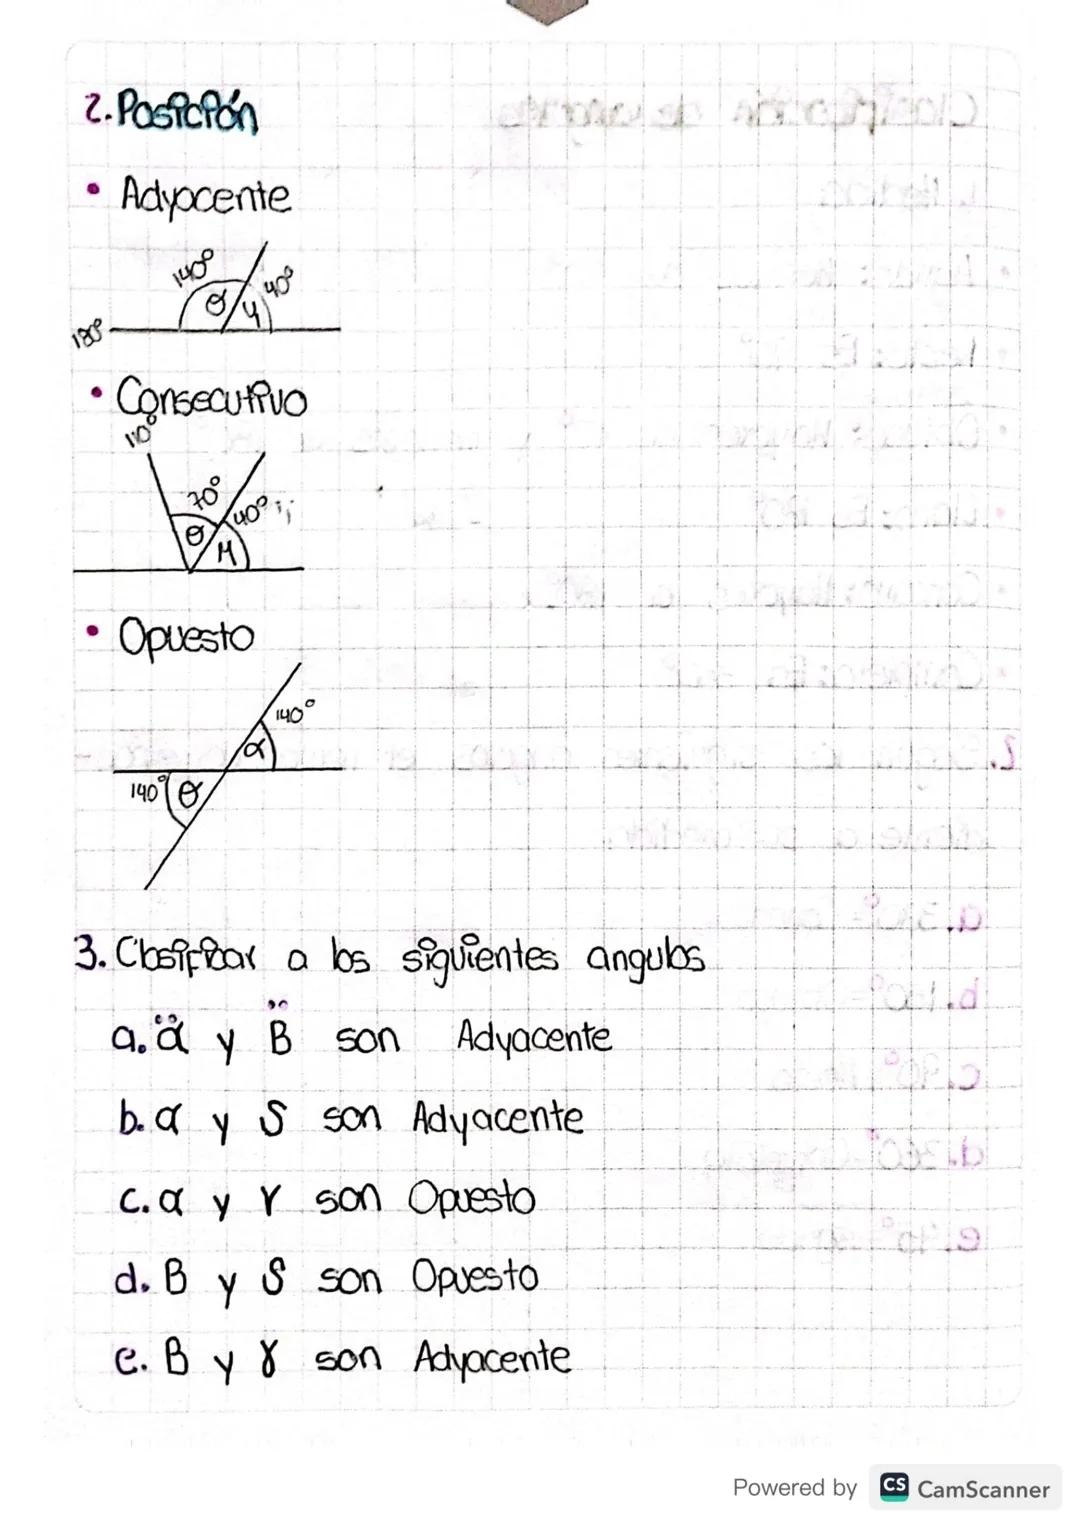 2. Posición
• Adyacente
140°
40°
θ
y
180°
• Consecutivo
110°
70°
40°
θ
M
• Opuesto
140°
α
140°
θ
3. Clasificar a los siguientes angulos
a. α y B son Adyacente
b. α y S son Adyacente
c. α y γ son Opuesto
d. B y S son Opuesto
e. B y γ son Adyacente
Powered by CS CamScanner